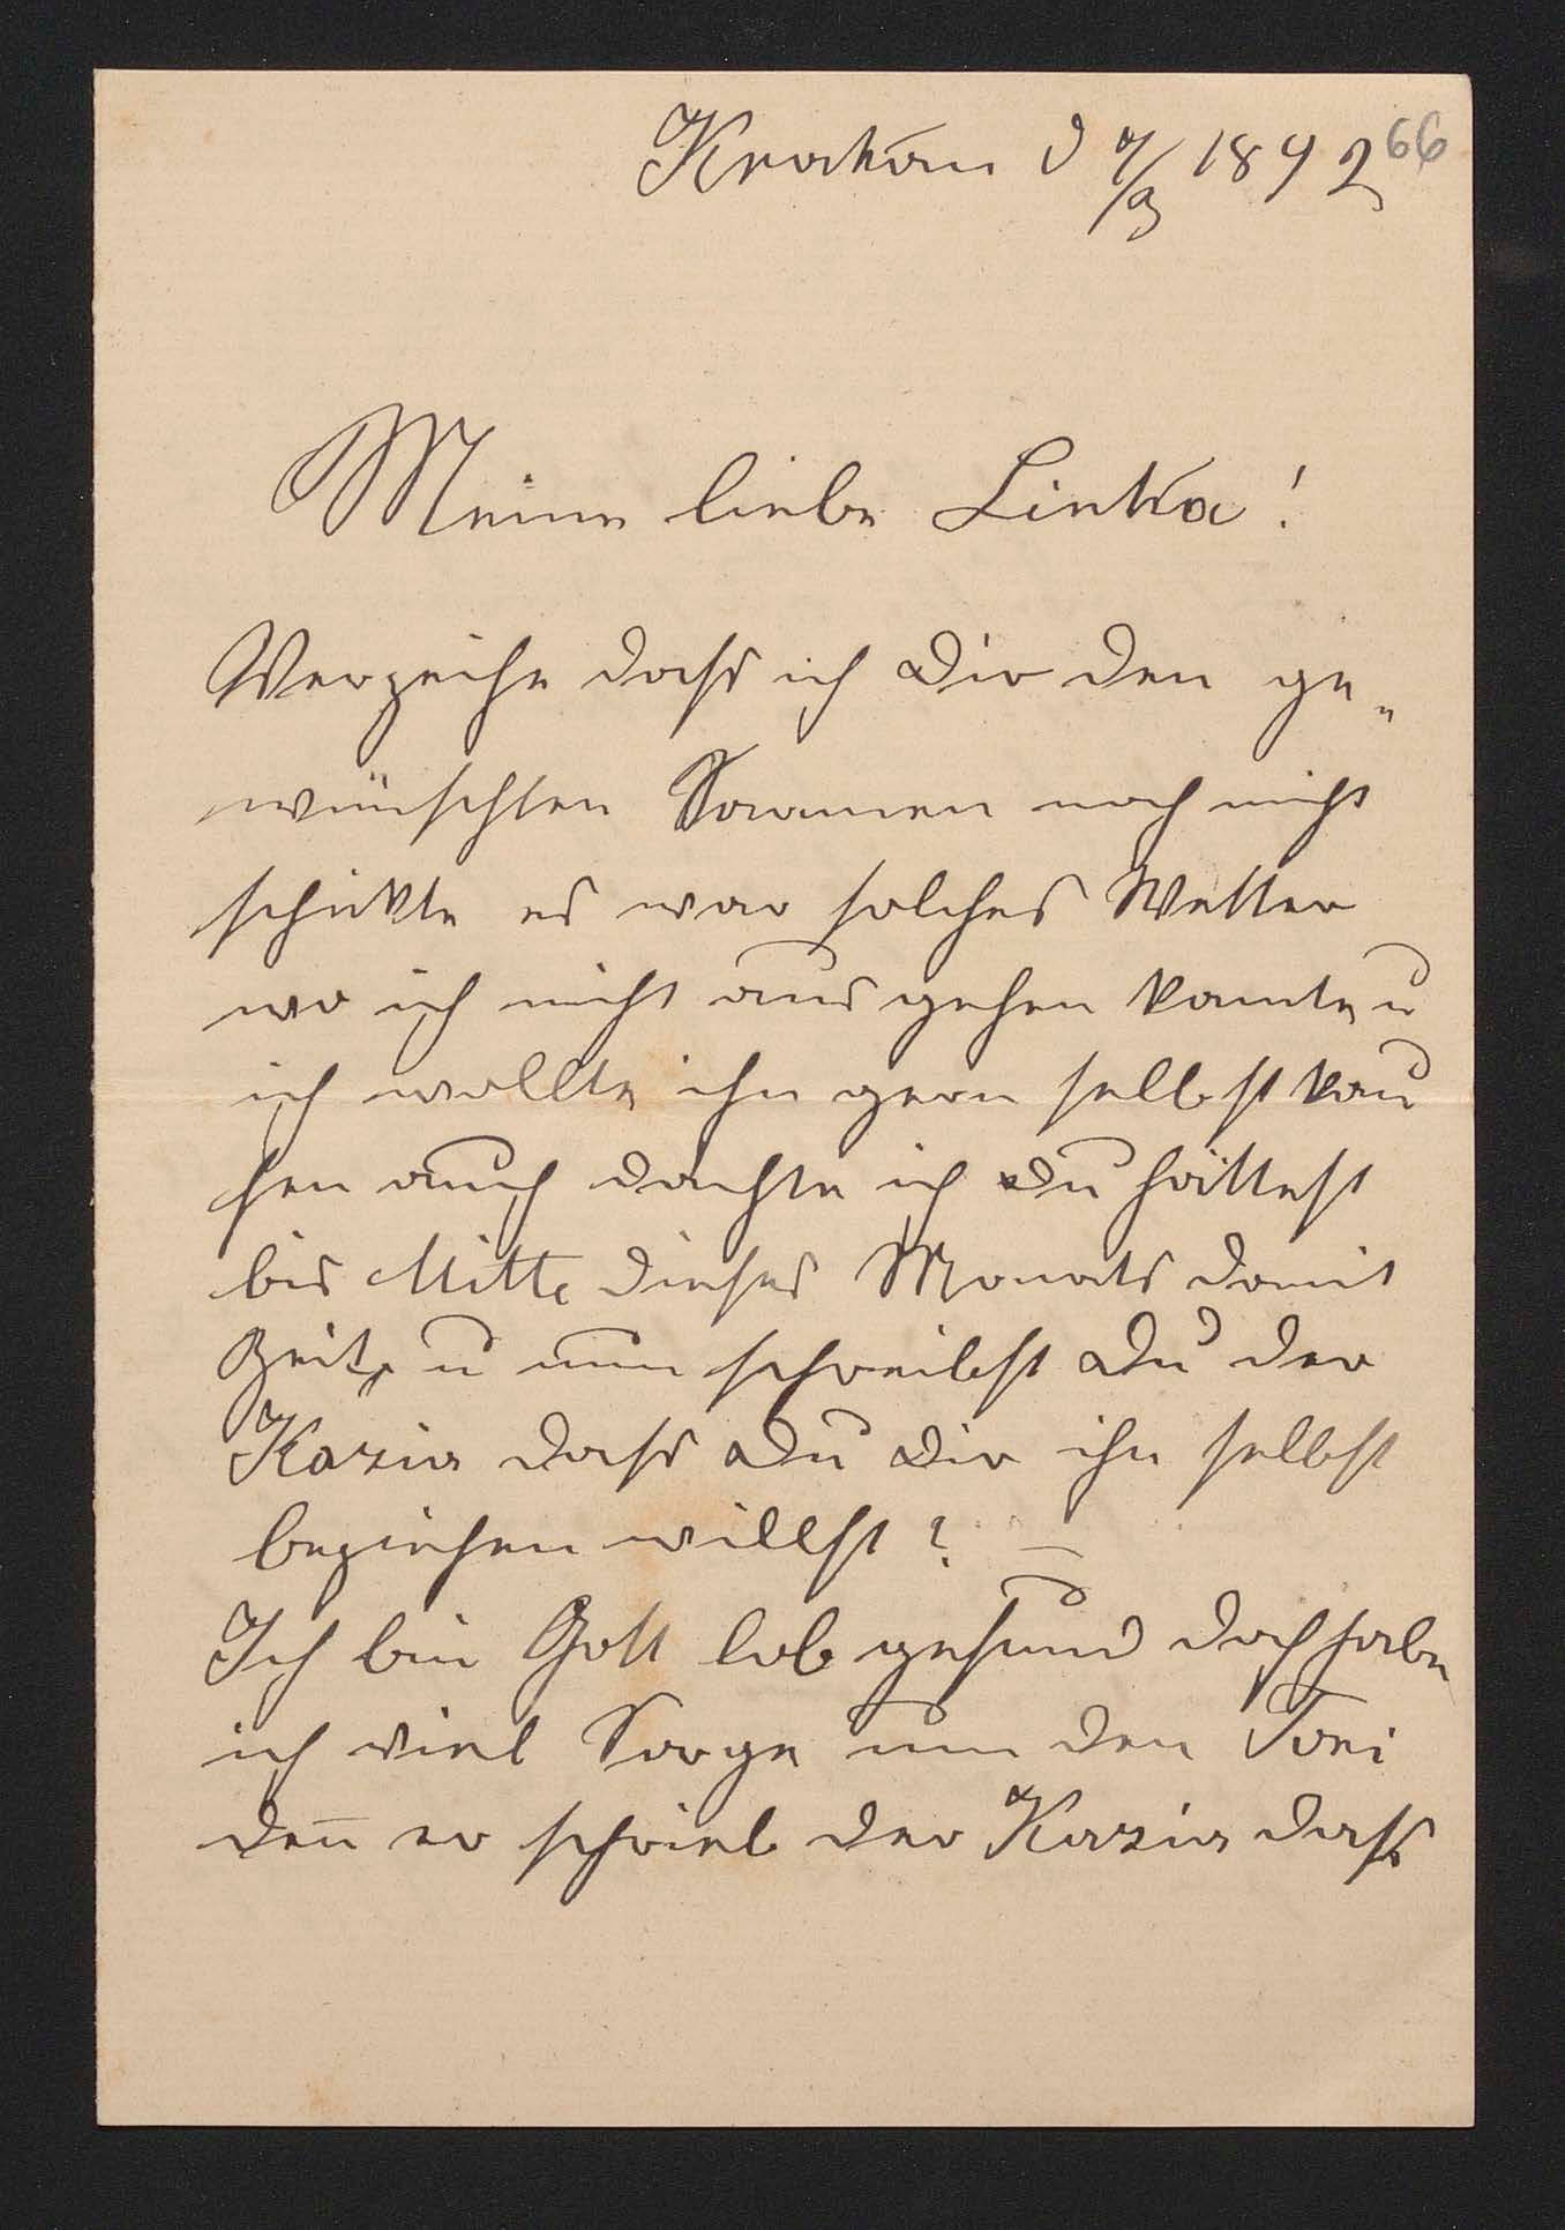 Krakau d 4/3 1892 66
Meine liebe Linka!
Verzeihe dass ich Dir den ge„
wünschten Saamen noch nicht
schikte es war solches Wetter
wo ich nicht aus gehen konnte u
ich wollte ihn gern selbst kau
fen auch dachte ich Du hättest
bis Mitte dieses Monats damit
Zeit, u nun schreibst Du der
Kazia dass Du Dir ihn selbst
beziehen willst? —
Ich bin Gott lob gesund doch habe
ich viel Sorge um den Toni
den̄ er schrieb der Kazia dass